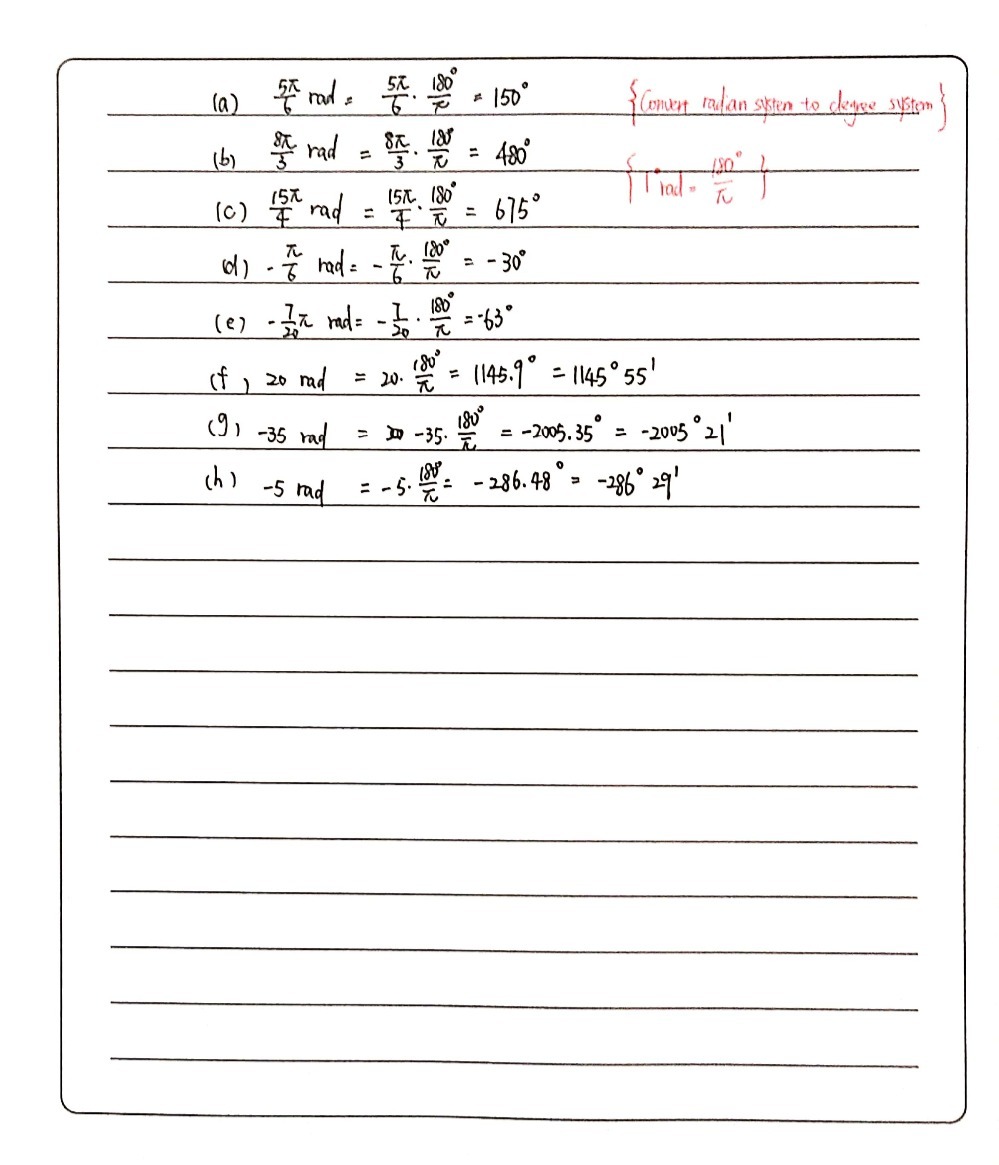 (a) 5π/6 rad = 5π/6 · 180°/π = 150°
{Convert radian system to degree system}
(b) 8π/3 rad = 8π/3 · 180°/π = 480°
{1 rad = 180°/π}
(c) 15π/4 rad = 15π/4 · 180°/π = 675°
(d) -π/6 rad = -π/6 · 180°/π = -30°
(e) -7/20 π rad = -7/20 · 180°/π = -63°
(f) 20 rad = 20 · 180°/π = 1145.9° = 1145° 55'
(g) -35 rad = -35 · 180°/π = -2005.35° = -2005° 21'
(h) -5 rad = -5 · 180°/π = -286.48° = -286° 29'